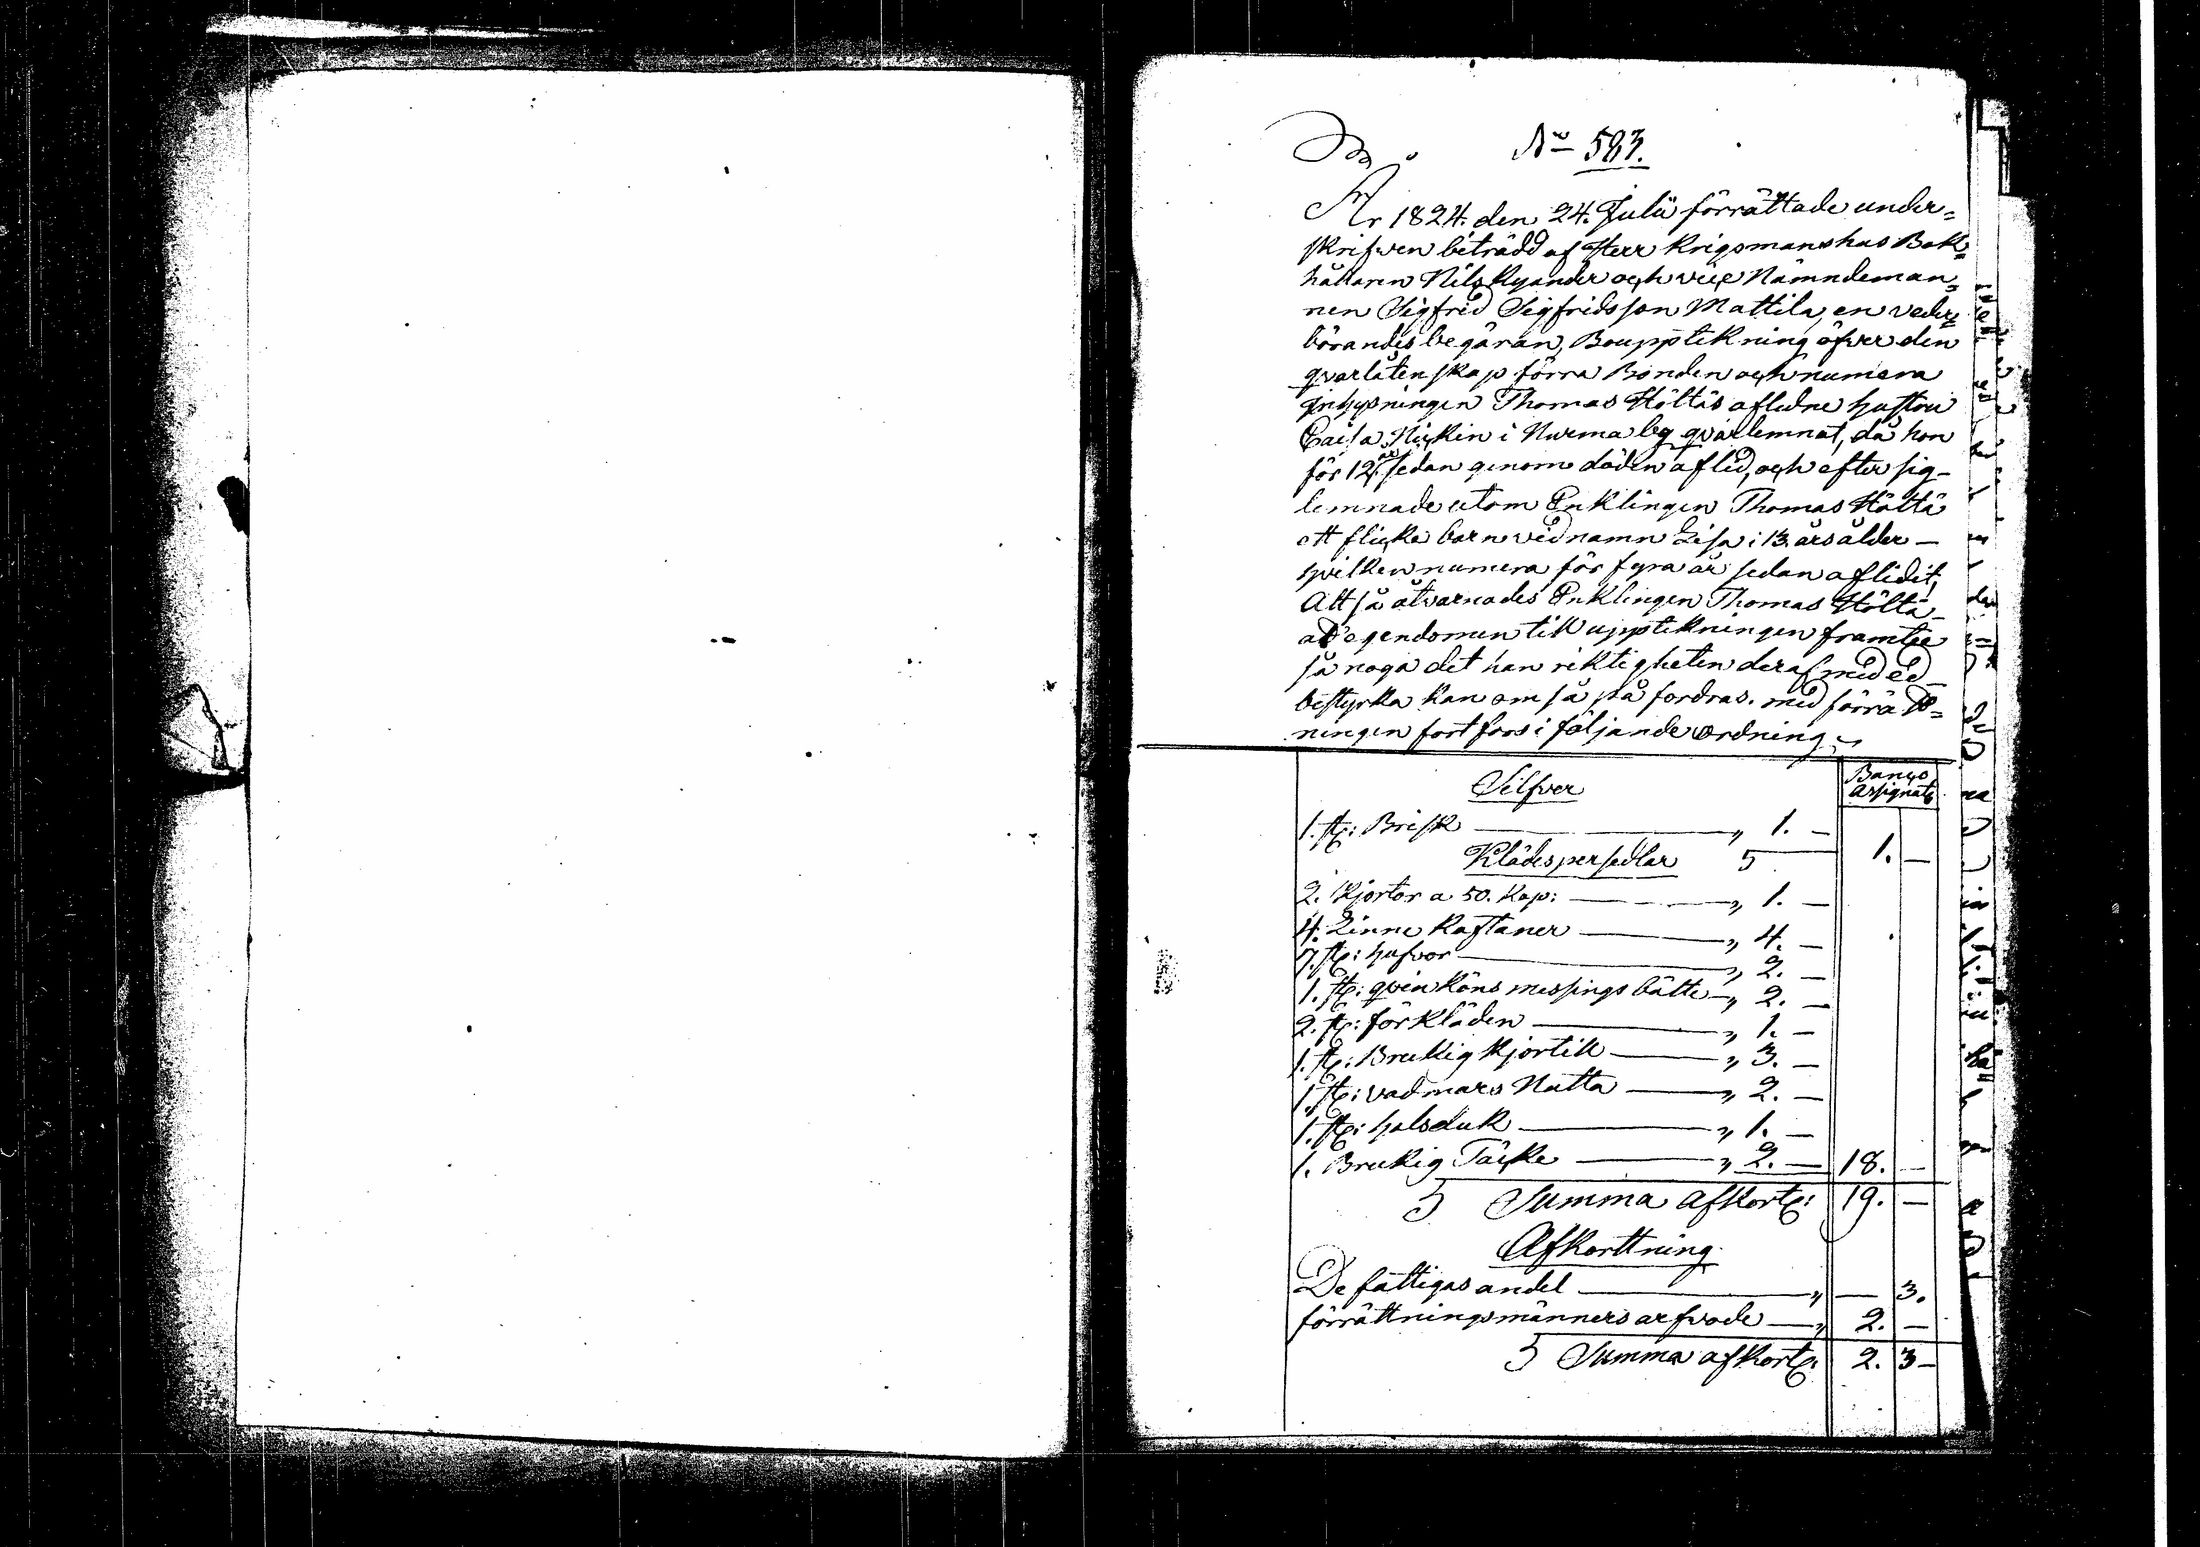 No 583.
År 1824. den 24. Julii förrättade under=
skrifwen biträdd af Herr Krigsmanshus Bok=
hållaren Nils Kyander och vice Nämndeman=
nen Sigfrid Sigfridsson Mattila, en veder=
börandes begäran, Boupptekning öfver den
qvarlåtenskap förra Bonden och numera
Inhysningen Thomas Höltäs aflidne hustru
Caisa Nickin i Nurma by qvarlemnat, då hon
för 12 år sedan genom döden aflied, och efter sig
lemnade utom Enklingen Thomas Höltä
ett flicke barn vid namn Lisa i 13 års ålder —
hvilken numera för fyra år sedan aflidit,
Alt så åtvarnades Enklingen Thomas Höltä
at egendomen till upptekningen framtee
så noga det han riktigheten deraf med ed
bestyrka kan om så på fordras. med förrätt=
ningen fortfors i följande ordning
Silfver
Banco
Assignat:
1. st: Brisk — „ 1. —
Klädespersedlar 1. —
2. Kjortor a 50. Kop: — „ 1. —
4. Linne Kaftaner — „ 4. —
7. st: hufvor — „ 2. —
1. st: qvinköns messings bälte — „ 2. —
2. st: förkläden — „ 1. —
1. st: Brukig Kjortill — „ 3. —
1. st: vadmars Natta — „ 2. —
1. st: halsduk — „ 1. —
1. Brukig Täcke — „ 2. — 18. —
Summa afkort: 19. —
Afkorttning
De fattigas andel — „ — 3.
förrättningsmänners arfvode — „ 2. —
Summa afkort: 2. 3 —